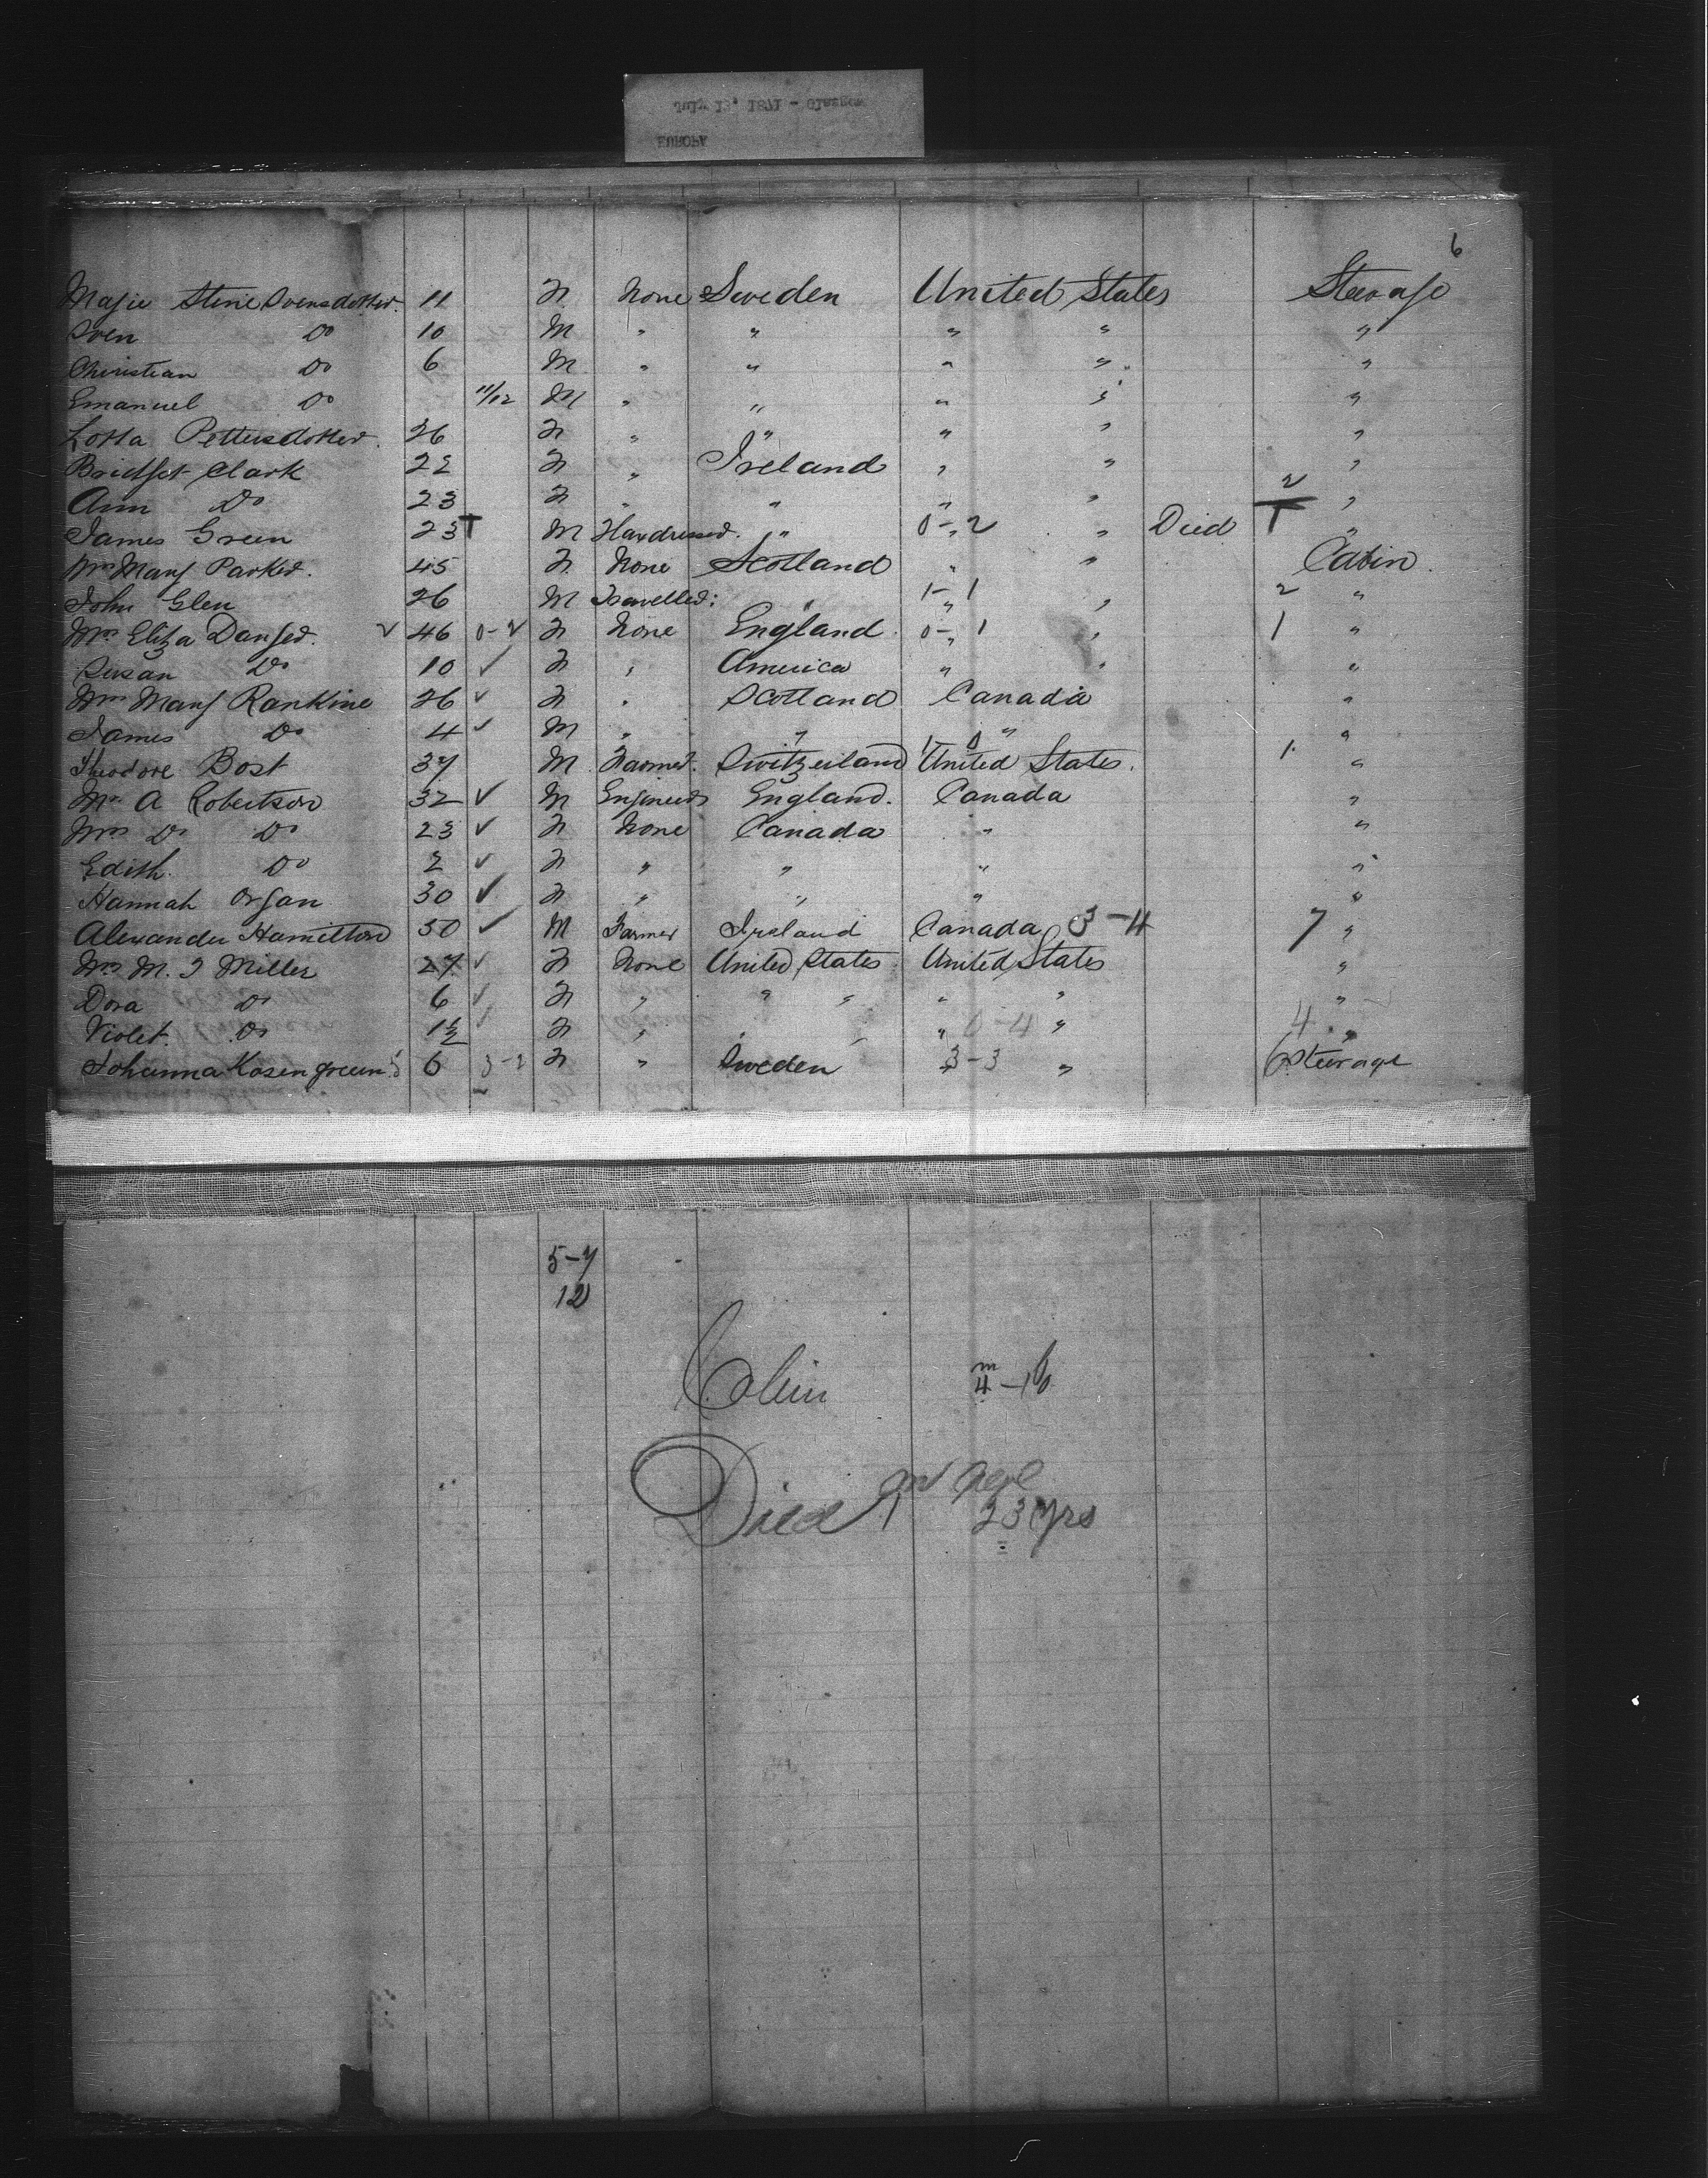 EUROPA
July 13, 1871 - Glasgow
6
Majie Stine Svensdotter. 11 F None Sweden United States Steerage
Sven Do 10 M " " " " "
Christian Do 6 M " " " " "
Emanuel Do 11/12 M " " " " "
Lotta Pettersdotter. 26 F " " " " "
Bridget Clark 22 F " Ireland " " "
Ann Do 23 F " " " " 2 "
James Green 23 T M " 0-2 " Died 1 "
Mrs Mary Parker. 45 F. None Scotland " " Cabin.
John Glen 26 M Traveller: " 1-1 " 2 "
Mrs Eliza Danger. ✓ 46 0-2 F None England 0-1 " 1 "
Susan Do 10 ✓ F " America " " "
Mrs Mary Rankine 26 ✓ F " Scotland Canada "
James Do 4 ✓ M " " " "
Theodore Bost 37 M Farmer. Switzerland 1-0 United States. 1. "
Mr A Robertson 32 ✓ M Engineer England. Canada "
Mrs Do Do 23 ✓ F None Canada " "
Edith. Do 2 ✓ F " " " "
Hannah Organ 30 ✓ F " " " "
Alexander Hamilton 50 ✓ M Farmer Ireland Canada 3-4 7 "
Mrs M. J Miller 27 ✓ F None United States United States "
Dora Do 6 ✓ F " " " " " "
Violet. Do 1½ ✓ F " " " 0-4 " 4 "
Johanna Rosengreen 6 3-2 F " Sweden 3-3 " 6 Steerage
5-7
12
m
4-10
Died age
23 yrs